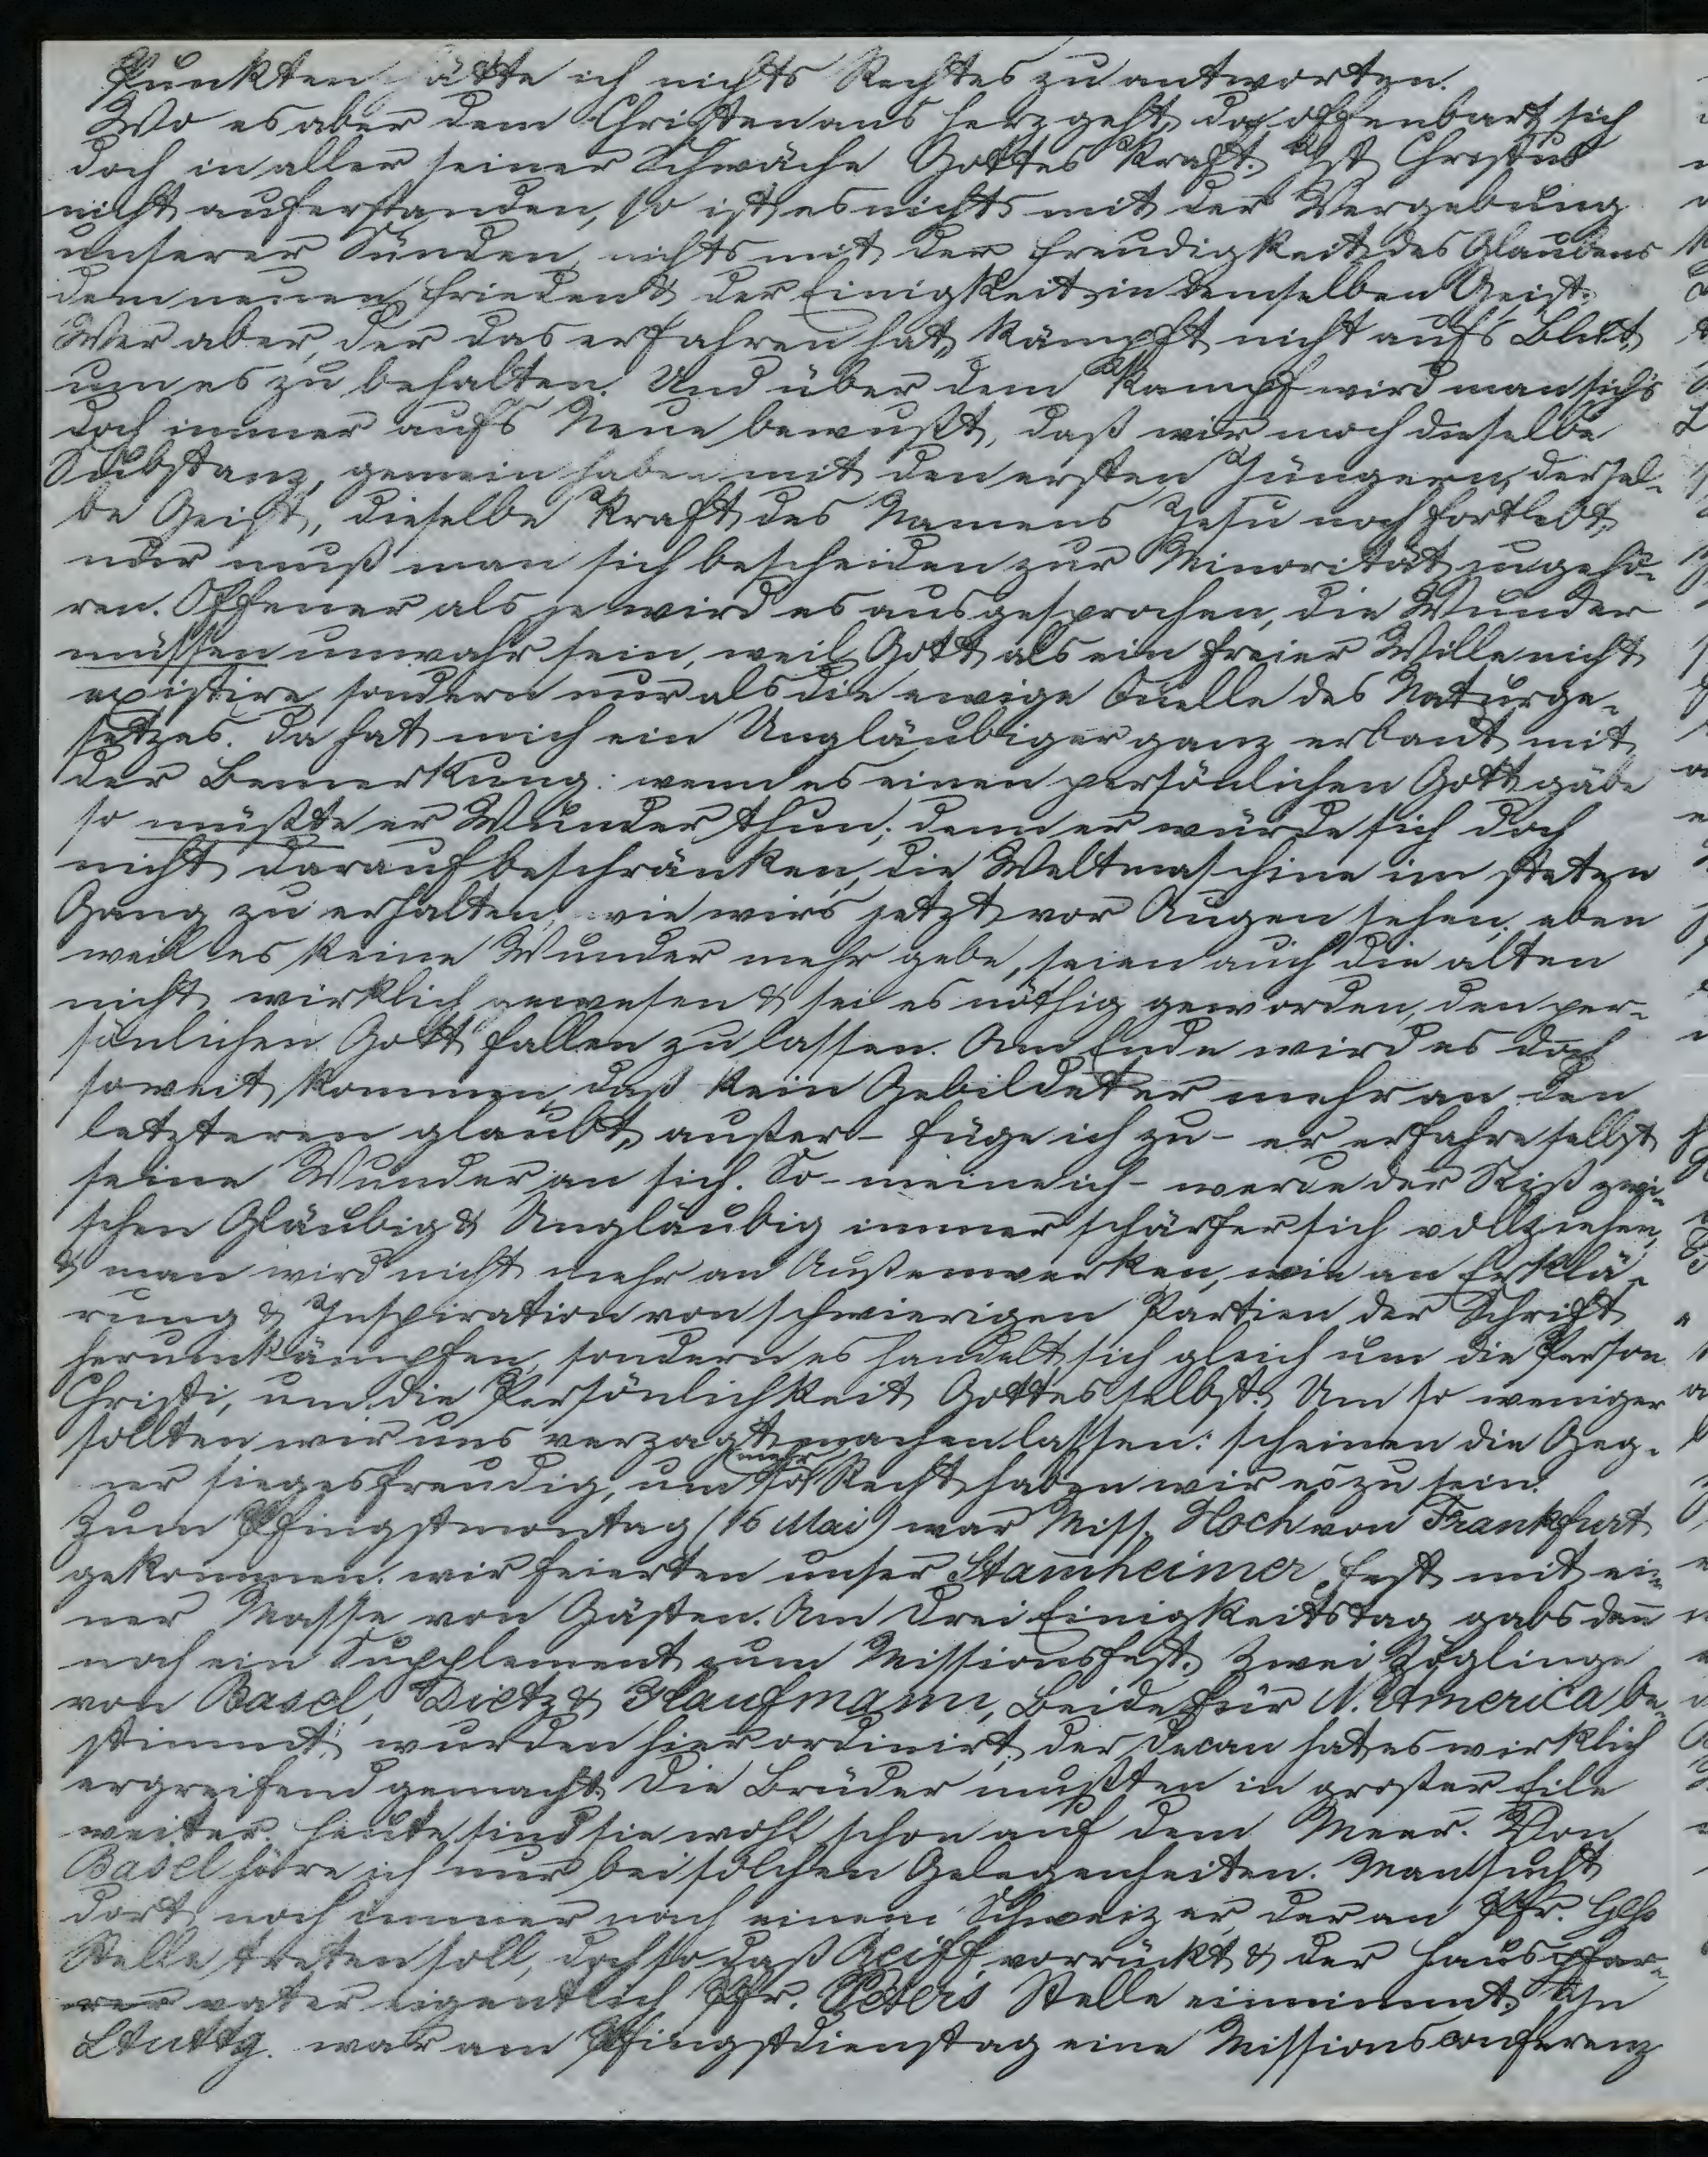 Punkten hätte ich nichts Rechtes zu antworten.
Wo es aber dem Christen ans Herz geht, da offenbart sich
doch in aller seiner Schwäche Gottes Kraft. Ist Christus
nicht auferstanden, so ist es nichts mit der Vergebung
unserer Sünden, nichts mit der Freudigkeit des Glaubens
dem neuen Frieden & der Einigkeit in demselben Geist.
Wer aber, der das erfahren hat, kämpft nicht aufs Blut,
um es zu behalten. Und über dem Kampf wird man sichs
doch immer aufs Neue bewußt, daß wir noch dieselbe
Substanz, gemein haben mit den ersten Jüngern, dersel-
be Geist, dieselbe Kraft des Namens Jesu noch fortlebt,
nur muß man sich bescheiden zur Minorität zu gehö-
ren. Offener als je wird es ausgesprochen, die Wunder
müssen unwahr sein, weil Gott als ein freier Wille nicht
existire sondern nur als die ewige Quelle des Naturge-
setzes. Da hat mich ein Ungläubiger ganz erbaut mit
der Bemerkung: wenn es einen persönlichen Gott gäbe
so müßte er Wunder thun; denn er würde sich doch
nicht darauf beschränken, die Weltmaschine im steten
Gang zu erhalten, wie wirs jetzt vor Augen sehen; eben
weil es keine Wunder mehr gebe, seien auch die alten
nicht wirklich gewesen & sei es nöthig geworden, den per-
sönlichen Gott fallen zu lassen. Am Ende wird es doch
soweit kommen, daß kein Gebildeter mehr an den
letzteren glaubt, außer - füge ich zu - er erfahre selbst
seine Wunder an sich. So - meine ich - werde der Riß zwi-
schen Gläubig & Ungläubig immer schärfer sich vollziehen,
& man wird nicht mehr an Außenwerken, wie an Erklä-
rung & Inspiration von schwierigen Partien der Schrift
herumkämpfen, sondern es handelt sich gleich um die Person
Christi, um die Persönlichkeit Gottes selbst. Um so weniger
sollten wir uns verzagt machen lassen: scheinen die Geg-
ner siegesfreudig, um so mehr Recht haben wir es zu sein.
Zum Pfingstmontag (16 Mai) war Miss. Hoch von Frankfurt
gekommen: wir feierten unser Stammheimer Fest mit ei-
ner Masse von Gästen. Am Drei Einigkeitstag gabs dan̄
noch ein Supplement zum Missionsfest. Zwei Zöglinge
von Basel, Dietz & Kaufmann, beide für N. America be-
stimmt, wurden hier ordinirt, der Decan hat es wirklich
ergreifend gemacht. Die Brüder mußten in großer Eile
weiter. Heute sind sie wohl schon auf dem Meer. Von
Basel höre ich nur bei solchen Gelegenheiten. Man sucht
dort noch immer nach einem Schweizer, der an Pfr. Geß
Stelle treten soll, doch so daß Reiff vorrückt & der Hauspfar-
rer vater eigentlich Pfr. Peters Stelle einnimmt. In
Stuttg. war am Pfingstdienstag eine Missionsconferenz